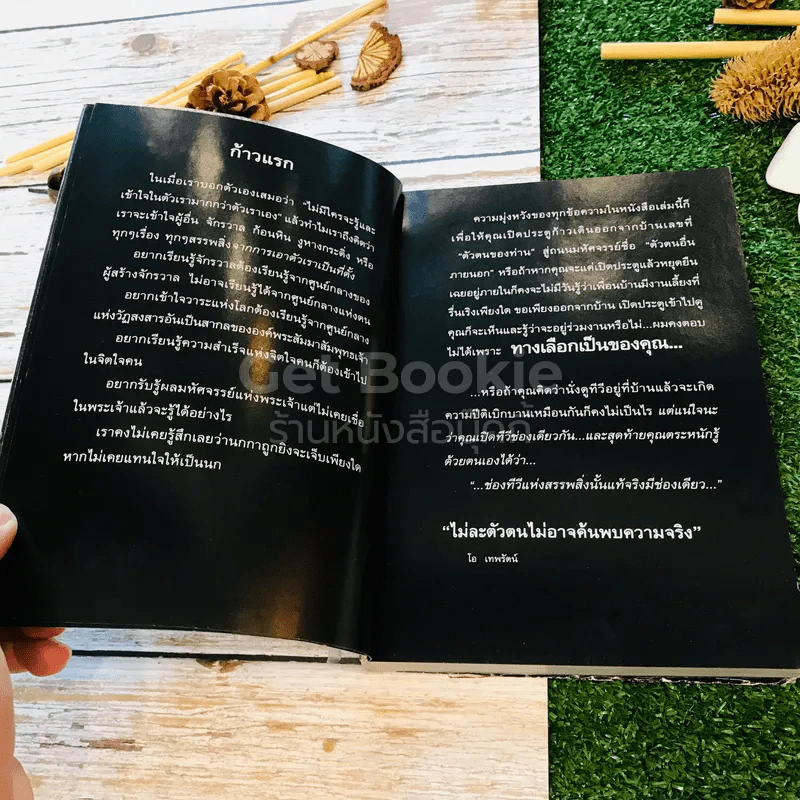 ก้าวแรก
ในเมื่อเราบอกตัวเองเสมอว่า "ไม่มีใครจะรู้และ
เข้าใจในตัวเรามากกว่าตัวเราเอง" แล้วทำไมเราถึงคิดว่า
เราจะเข้าใจผู้อื่น จักรวาล ก้อนหิน งูหางกระดิ่ง หรือ
ทุกๆเรื่อง ทุกๆสรรพสิ่งจากการเอาตัวเราเป็นที่ตั้ง
อยากเรียนรู้จักรวาลต้องเรียนรู้จากศูนย์กลางของ
ผู้สร้างจักรวาล ไม่อาจเรียนรู้ได้จากศูนย์กลางแห่งตน
อยากเข้าใจวาระแห่งโลกต้องเรียนรู้จากศูนย์กลาง
แห่งวัฏสงสารอันเป็นสากลขององค์พระสัมมาสัมพุทธเจ้า
อยากเรียนรู้ความสำเร็จแห่งจิตใจคนก็ต้องเข้าไป
ในจิตใจคน
อยากรับรู้ผลมหัศจรรย์แห่งพระเจ้าแต่ไม่เคยเชื่อ
ในพระเจ้าแล้วจะรู้ได้อย่างไร
เราคงไม่เคยรู้สึกเลยว่านกกาถูกยิงจะเจ็บเพียงใด
หากไม่เคยแทนใจให้เป็นนก
ความมุ่งหวังของทุกข้อความในหนังสือเล่มนี้ก็
เพื่อให้คุณเปิดประตูก้าวเดินออกจากบ้านเลขที่
"ตัวตนของท่าน" สู่ถนนมหัศจรรย์ชื่อ "ตัวตนอื่น
ภายนอก" หรือถ้าหากคุณจะแค่เปิดประตูแล้วหยุดยืน
เฉยอยู่ภายในก็คงจะไม่มีวันรู้ว่าเพื่อนบ้านมีงานเลี้ยงที่
รื่นเริงเพียงใด ขอเพียงออกจากบ้าน เปิดประตูเข้าไปดู
คุณก็จะเห็นและรู้ว่าจะอยู่ร่วมงานหรือไม่...ผมคงตอบ
ไม่ได้เพราะ ทางเลือกเป็นของคุณ...
...หรือถ้าคุณคิดว่านั่งดูทีวีอยู่ที่บ้านแล้วจะเกิด
ความปีติเบิกบานเหมือนกันก็คงไม่เป็นไร แต่แน่ใจนะ
ว่าคุณเปิดทีวีช่องเดียวกัน...และสุดท้ายคุณตระหนักรู้
ด้วยตนเองได้ว่า...
"...ช่องทีวีแห่งสรรพสิ่งนั้นแท้จริงมีช่องเดียว..."
"ไม่ละตัวตนไม่อาจค้นพบความจริง"
โอ เทพรัตน์
Get Bookie
ร้านหนังสือบุ๊คกี้